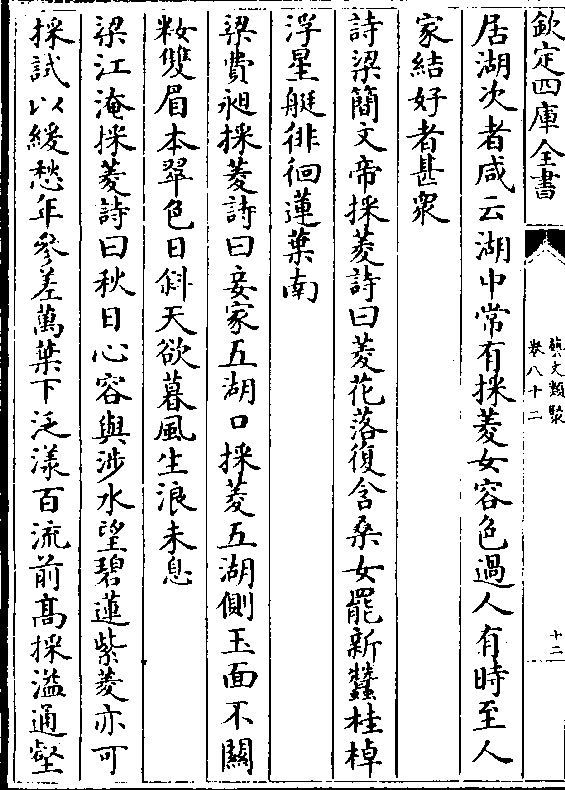 欽定四庫全書
藝文類聚
卷八十二
十二
居湖次者咸云湖中常有採菱女容色過人有時至人
家結好者甚衆
詩梁簡文帝採菱詩曰菱花落復含桑女罷新蠶桂棹
浮星艇徘徊蓮葉南
梁費昶採菱詩曰妾家五湖口採菱五湖側玉面不關
粧雙眉本翠色日斜天欲暮風生浪未息
梁江淹採菱詩曰秋日心容與涉水望碧蓮紫菱亦可
採試以緩愁年參差萬葉下泛漾百流前髙採溢通壑